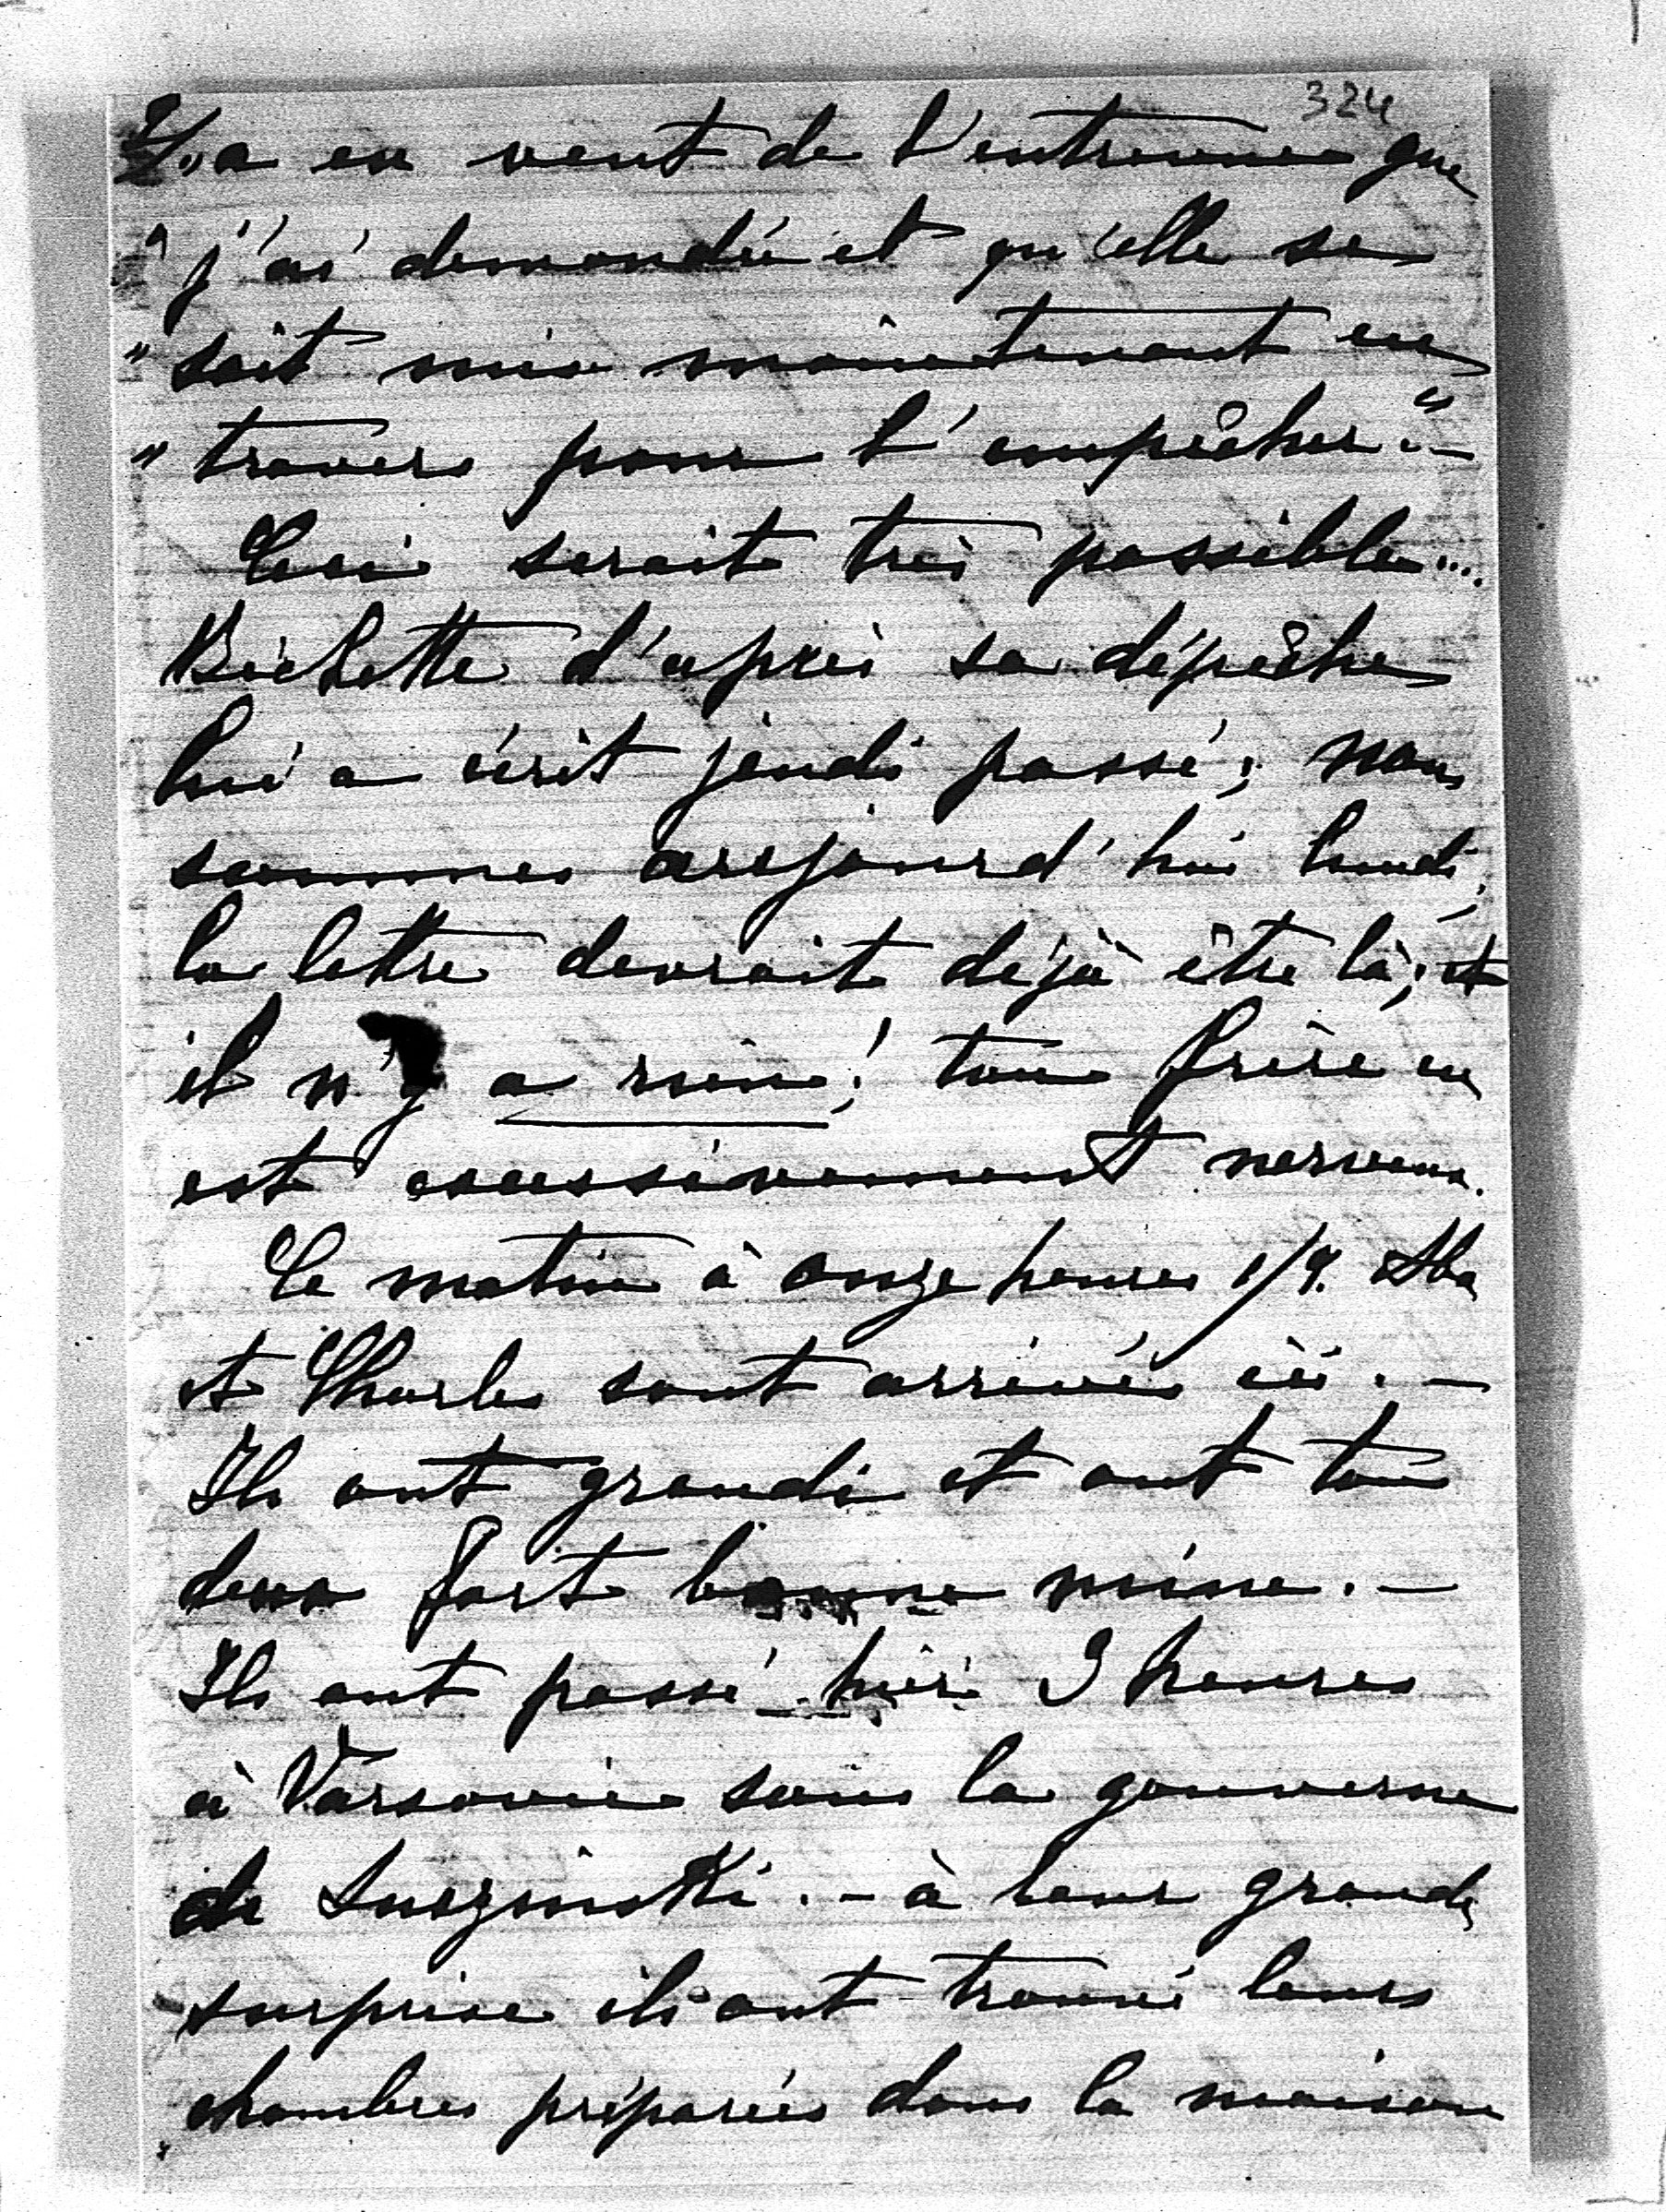 324
" a eu vent de l'entrevue que
" j'ai demandée et qu'elle se
" soit mise maintenant en
" travers pour l'empêcher." —
Ceci serait très possible....
Bichette d'après sa dépêche
lui a écrit jeudi passé; nous
sommes aujourd'hui lundi,
la lettre devrait déjà être là; et
il n'y a rien! ton frère en
est excessivement nerveux.
Ce matin à onze heures 1/4. Aba
et Charles sont arrivés ici. —
Ils ont grandi et ont tous
deux fort bonne mine. —
Ils ont passé hier 3 heures
à Varsovie sous la gouverne
de . — à leur grande
surprise ils ont trouvé leurs
chambres préparées dans la maison